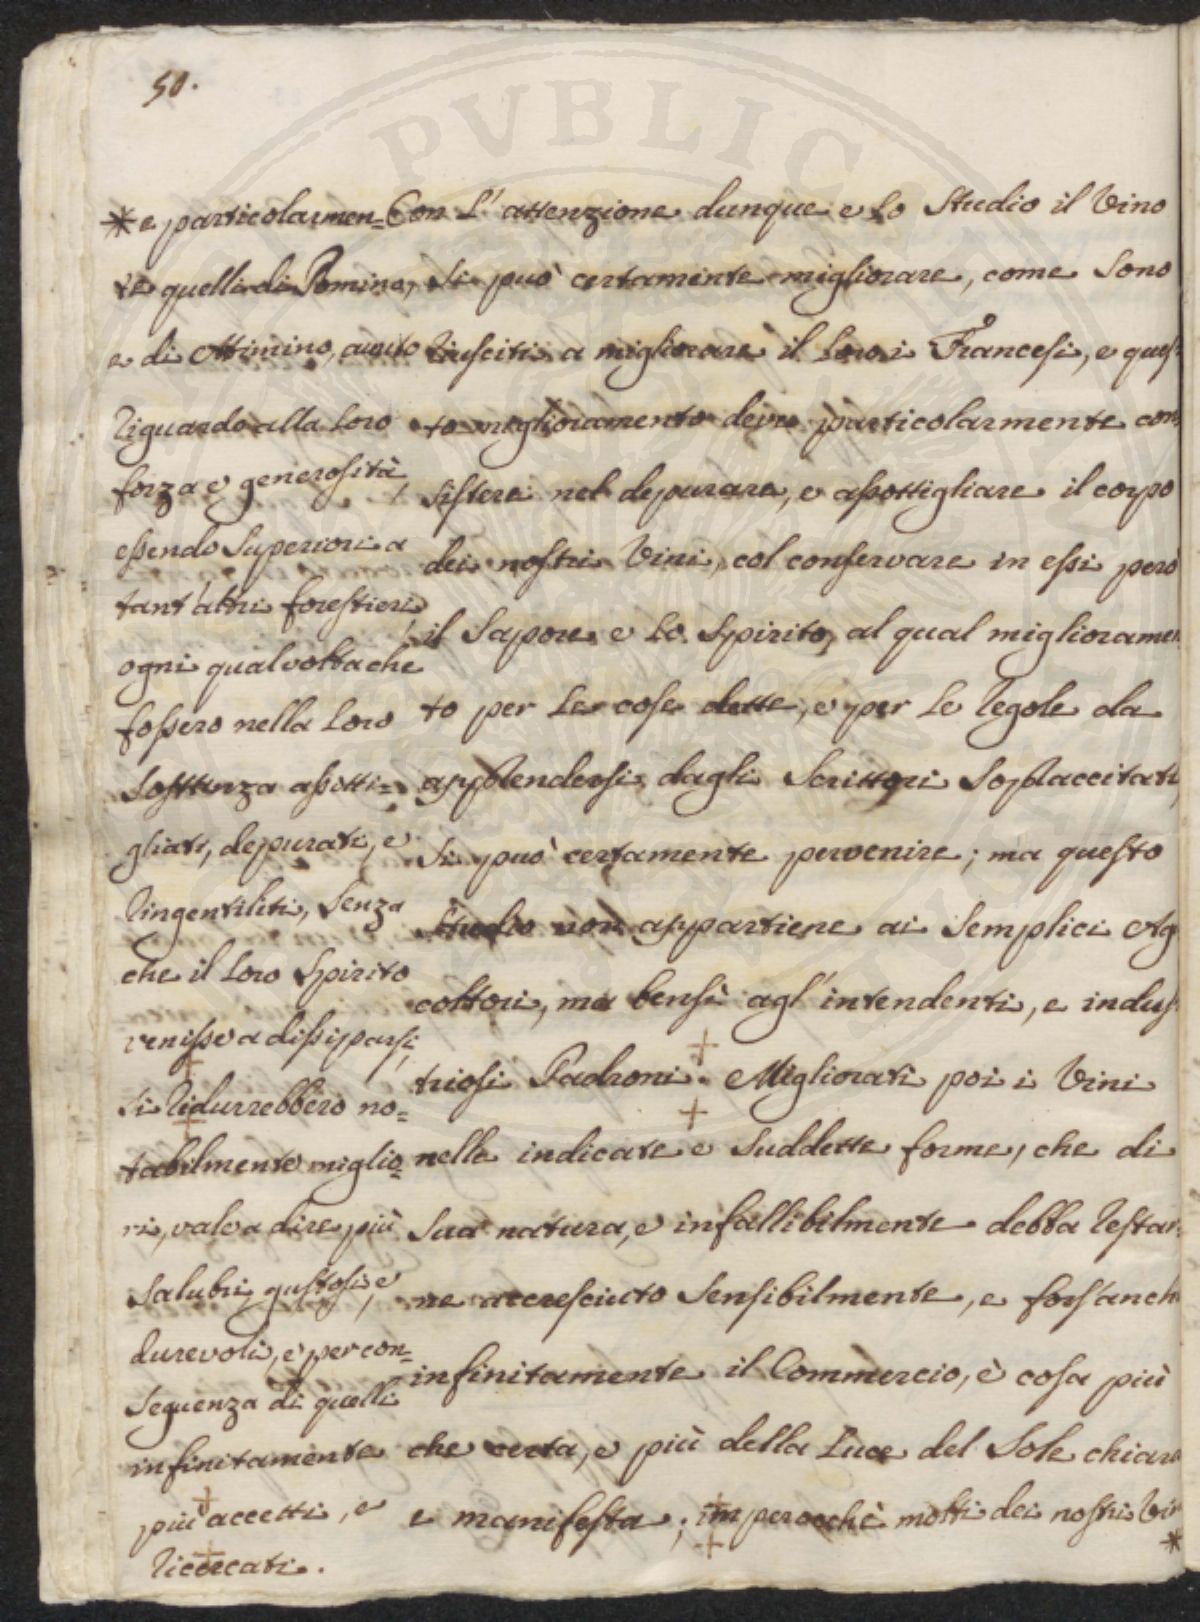 50.
Con L'attenzione dunque e Lo Studio il Vino
si può certamente migliorare, come sono
riusciti a migliorare il Loro i Francesi, e ques-
to miglioramento deve particolarmente con
sistere nel depurare, e assottigliare il corpo
dei nostri Vini, col conservare in essi però
il Sapore, e Lo Spirito, al qual miglioramen
to per Le cose dette, e per Le regole da
apprendersi dagli Scrittori Sopraccitati,
si può certamente pervenire; ma questo
Studio non appartiene ai Semplici Ag
coltori, ma bensì agl'intendenti, e indus-
triosi Padroni. Migliorati poi i Vini
nelle indicate e Suddette forme, che di
Sua natura, e infallibilmente debba restar-
ne accresciuto Sensibilmente, e fors'anche
infinitamente il Commercio, è cosa più
che certa, e più della Luce del Sole chiara
e manifesta; imperocchè molti dei nostri Vin
*
* e particolarmen=
te quelli di Pomino,
e di Artimino, avuto
riguardo alla Loro
forza e generosità,
essendo Superiori a
tant'altri forestieri,
ogni qualvolta che
fossero nella Loro
Sostanza assotti=
gliati, depurati, e
ringentiliti, Senza
che il Loro Spirito
venisse a dissiparsi,
si ridurrebbero no=
tabilmente miglio=
ri, vale a dire più
Salubri, gustosi, e
durevoli, e per con=
Seguenza di quelli
infinitamente
più accetti, e
ricercati.
PVBLICA